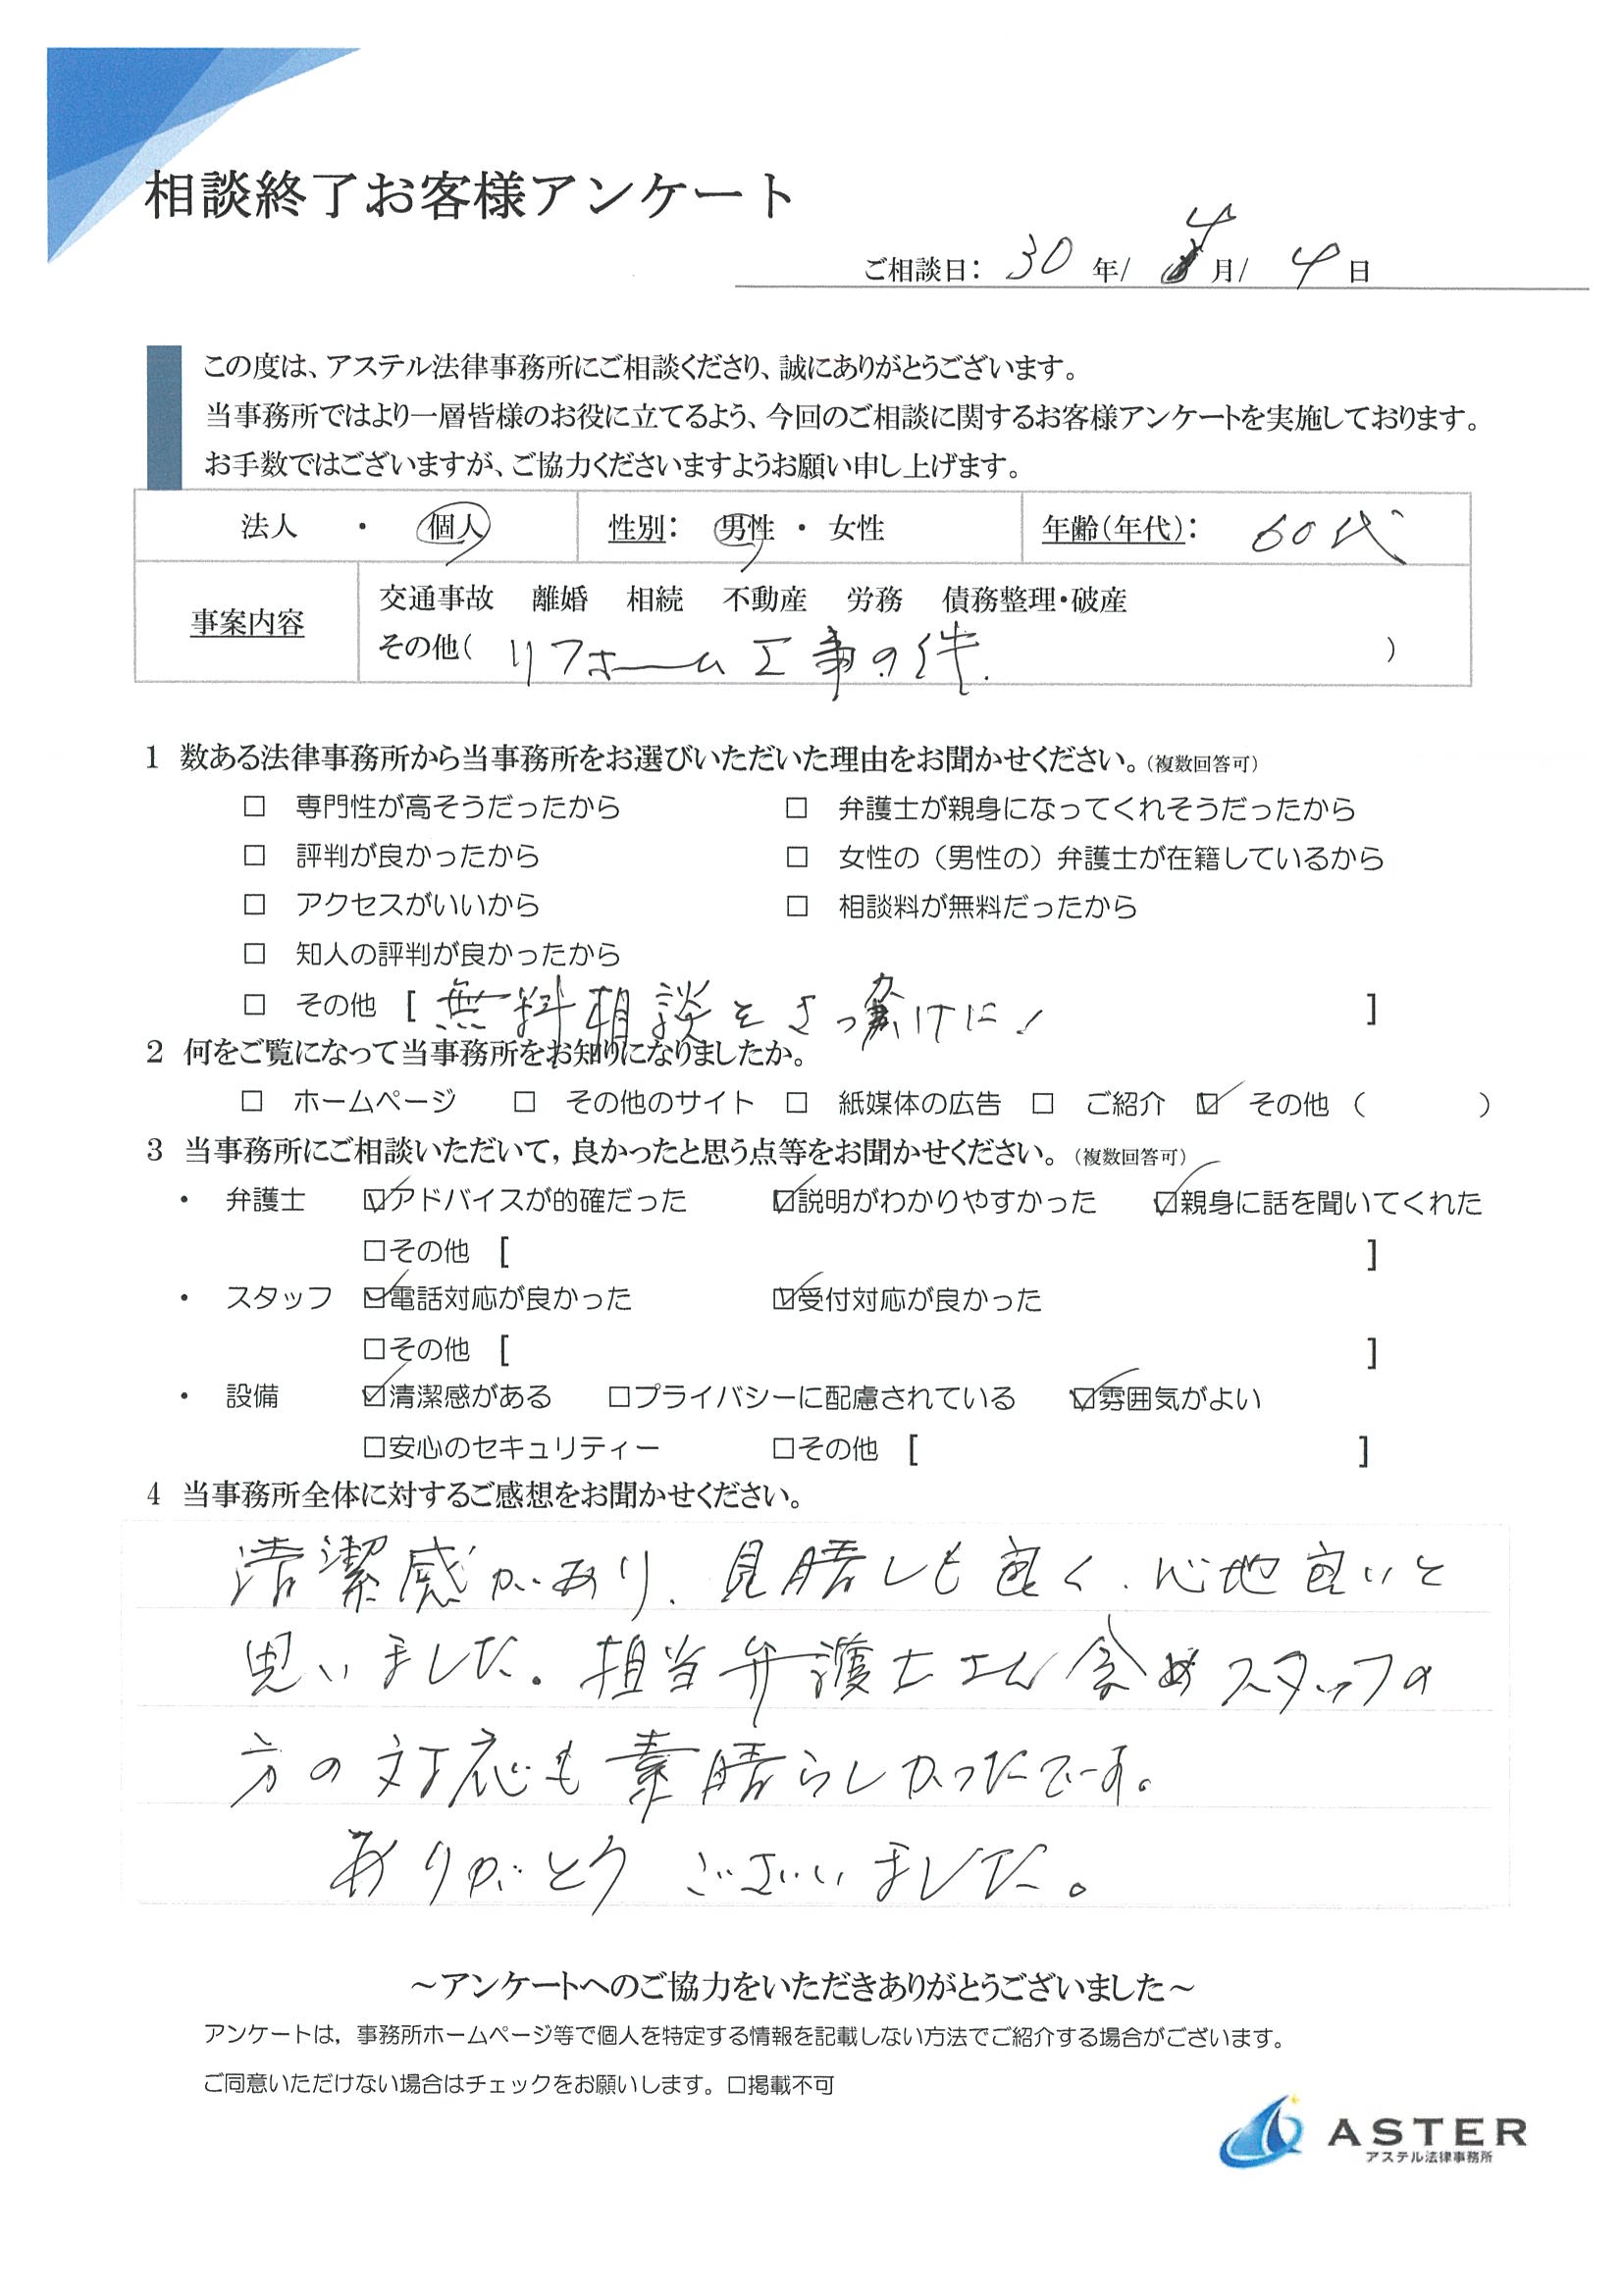 相談終了お客様アンケート
ご相談日： 30 年/ 4 月/ 4 日
この度は、アステル法律事務所にご相談くださり、誠にありがとうございます。
当事務所ではより一層皆様のお役に立てるよう、今回のご相談に関するお客様アンケートを実施しております。
お手数ではございますが、ご協力くださいますようお願い申し上げます。
法人 ・ 個人 性別： 男性 ・ 女性 年齢(年代)： 60代
事案内容 交通事故 離婚 相続 不動産 労務 債務整理・破産
その他( リフォーム工事の件. )
1 数ある法律事務所から当事務所をお選びいただいた理由をお聞かせください。(複数回答可)
□ 専門性が高そうだったから □ 弁護士が親身になってくれそうだったから
□ 評判が良かったから □ 女性の（男性の）弁護士が在籍しているから
□ アクセスがいいから □ 相談料が無料だったから
□ 知人の評判が良かったから
□ その他 [ 無料相談をきっかけに! ]
2 何をご覧になって当事務所をお知りになりましたか。
□ ホームページ □ その他のサイト □ 紙媒体の広告 □ ご紹介 ☑ その他 （ ）
3 当事務所にご相談いただいて，良かったと思う点等をお聞かせください。(複数回答可)
・ 弁護士 ☑アドバイスが的確だった ☑説明がわかりやすかった ☑親身に話を聞いてくれた
□その他 [ ]
・ スタッフ ☑電話対応が良かった ☑受付対応が良かった
□その他 [ ]
・ 設備 ☑清潔感がある □プライバシーに配慮されている ☑雰囲気がよい
□安心のセキュリティー □その他 [ ]
4 当事務所全体に対するご感想をお聞かせください。
清潔感があり、見晴しも良く、心地良いと
思いました。担当弁護士さん含めスタッフの
方の対応も素晴らしかったです。
ありがとうございました。
～アンケートへのご協力をいただきありがとうございました～
アンケートは，事務所ホームページ等で個人を特定する情報を記載しない方法でご紹介する場合がございます。
ご同意いただけない場合はチェックをお願いします。□掲載不可
ASTER
アステル法律事務所